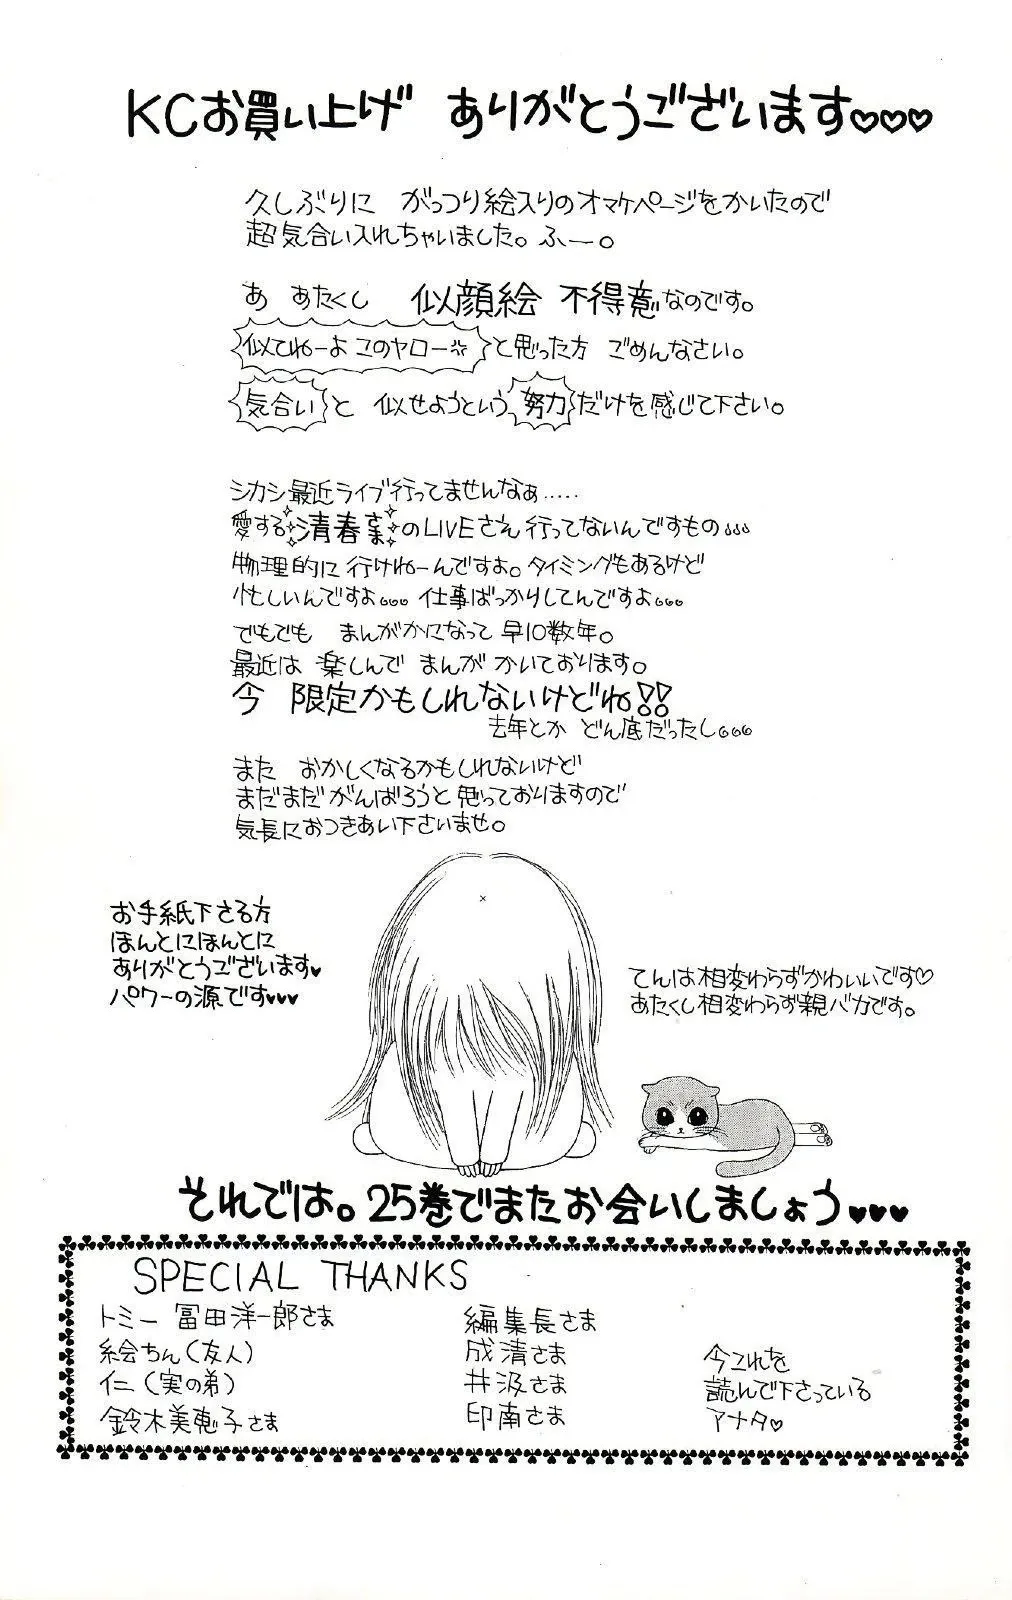 KCお買い上げ ありがとうございます♡♡♡
久しぶりに がっつり絵入りのオマケページをかいたので
超気合い入れちゃいました。ふー。
あ あたくし 似顔絵 不得意なのです。
似てねーよ このヤロー と思った方 ごめんなさい。
気合い と 似せようという 努力 だけを感じて下さい。
シカシ最近ライブ行ってませんなぁ.....
愛する 清春さま のLIVEさえ行ってないんですもの。。。
物理的に行けねーんですよ。タイミングもあるけど
忙しいんですよ。。。 仕事ばっかりしてんですよ。。。
でもでも まんがかになって 早10数年。
最近は 楽しんで まんが かいております。
今 限定かもしれないけどね!!
去年とか どん底だったし。。。
また おかしくなるかもしれないけど
まだまだがんばろうと思っておりますので
気長におつきあい下さいませ。
お手紙下さる方
ほんとにほんとに
ありがとうございます♥
パワーの源です♥♥♥
てんは相変わらずかわいいです♡
あたくし相変わらず親バカです。
それでは。25巻でまたお会いしましょう♥♥♥
SPECIAL THANKS
トミー 冨田洋一郎さま
絵ちん(友人)
仁(実の弟)
鈴木美恵子さま
編集長さま
成清さま
井汲さま
印南さま
今これを
読んで下さっている
アナタ♡